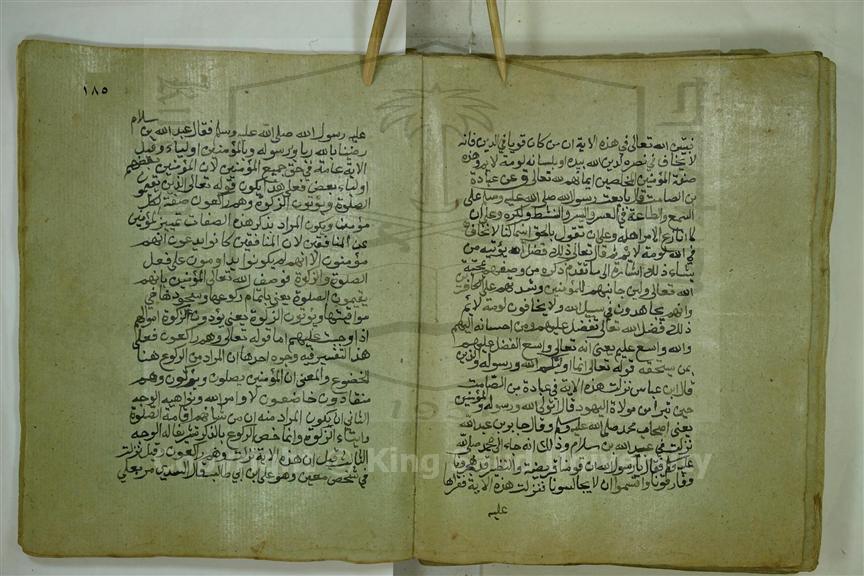 فبين الله تعالى في هذه الاية ان من كان قويا في الدين فانه
لا يخاف في نصره لدين الله بيده او بلسانه لومة لايم وهذه
صفة المؤمنين المخلصين ايمانهم لله تعالى ق عن عبادة
بن الصامت قال بايعت رسول الله صلى الله عليه وسلم على
السمع والطاعة في العسر واليسر والمنشط والمكره وعلى ان
لا ننازع الامر اهله وعلى ان نقول بالحق اينما كنا لا نخاف
في الله لومة لايم ثم قال تعالى ذلك فضل الله يؤتيه من
يشاء ذلك اشارة الى ما تقدم ذكره من وصفهم بمحبة
الله تعالى ولين جانبهم للمؤمنين وشدتهم على الكافرين
وانهم يجاهدون في سبيل الله ولا يخافون لومة لايم
ذلك فضل الله تعالى تفضل عليهم ومن احسانه اليهم
والله واسع عليم يعني انه تعالى واسع الفضل عليهم
بمن يستحقه قوله تعالى انما وليكم الله ورسوله والذين
قال ابن عباس نزلت هذه الاية في عبادة بن الصامت
حين تبرا من موالاة اليهود قال اتولى الله ورسوله والمؤمنين
يعني اصحاب محمد صلى الله عليه وسلم وقال جابر بن عبد الله
نزلت في عبد الله بن سلام وذلك انه جاء الى محمد صلى الله
عليه وسلم فقال يا رسول الله ان قومنا قريظة والنضير قد هجرونا
وفارقونا واقسموا ان لا يجالسونا فنزلت هذه الاية فقراها
عليه
١٨٥
عليه رسول الله صلى الله عليه وسلم فقال عبد الله بن سلام
رضينا بالله ربا وبرسوله وبالمؤمنين اولياء وقيل
الاية عامة في حق جميع المؤمنين لان المؤمنين بعضهم
اولياء بعض فعلى هذا يكون قوله تعالى الذين يقيمون
الصلوة ويؤتون الزكوة وهم راكعون صفة لكل
مؤمن ويكون المراد بذكر هذه الصفات تمييز المؤمنين
عن المنافقين لان المنافقين كانوا يدعون انهم
مؤمنون الا انهم لم يكونوا يداومون على فعل
الصلوة والزكوة فوصف الله تعالى المؤمنين بانهم
يقيمون الصلوة يعني باتمام ركوعها وسجودها في
مواقيتها ويؤتون الزكوة يعني يؤدون زكوة اموالهم
اذا وجبت عليهم اما قوله تعالى وهم راكعون فعلى
هذا التفسير فيه وجوه احدها ان المراد من الركوع هنا
الخضوع والمعنى ان المؤمنين يصلون ويزكون وهم
منقادون خاضعون لاوامر الله ونواهيه الوجه
الثاني ان يكون المراد منه ان من شانهم اقامة الصلوة
وايتاء الزكوة وانما خص الركوع بالذكر تشريفا له الوجه
الثالث قيل ان هذه الاية نزلت وهم راكعون وقيل نزلت
في شخص معين وهو علي ابن ابي طالب قال السدي مر بعلي
King